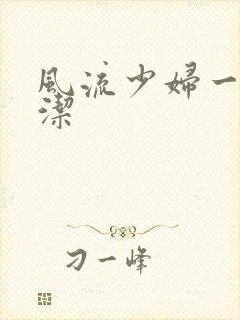 風流少婦一
潔
刁一峰